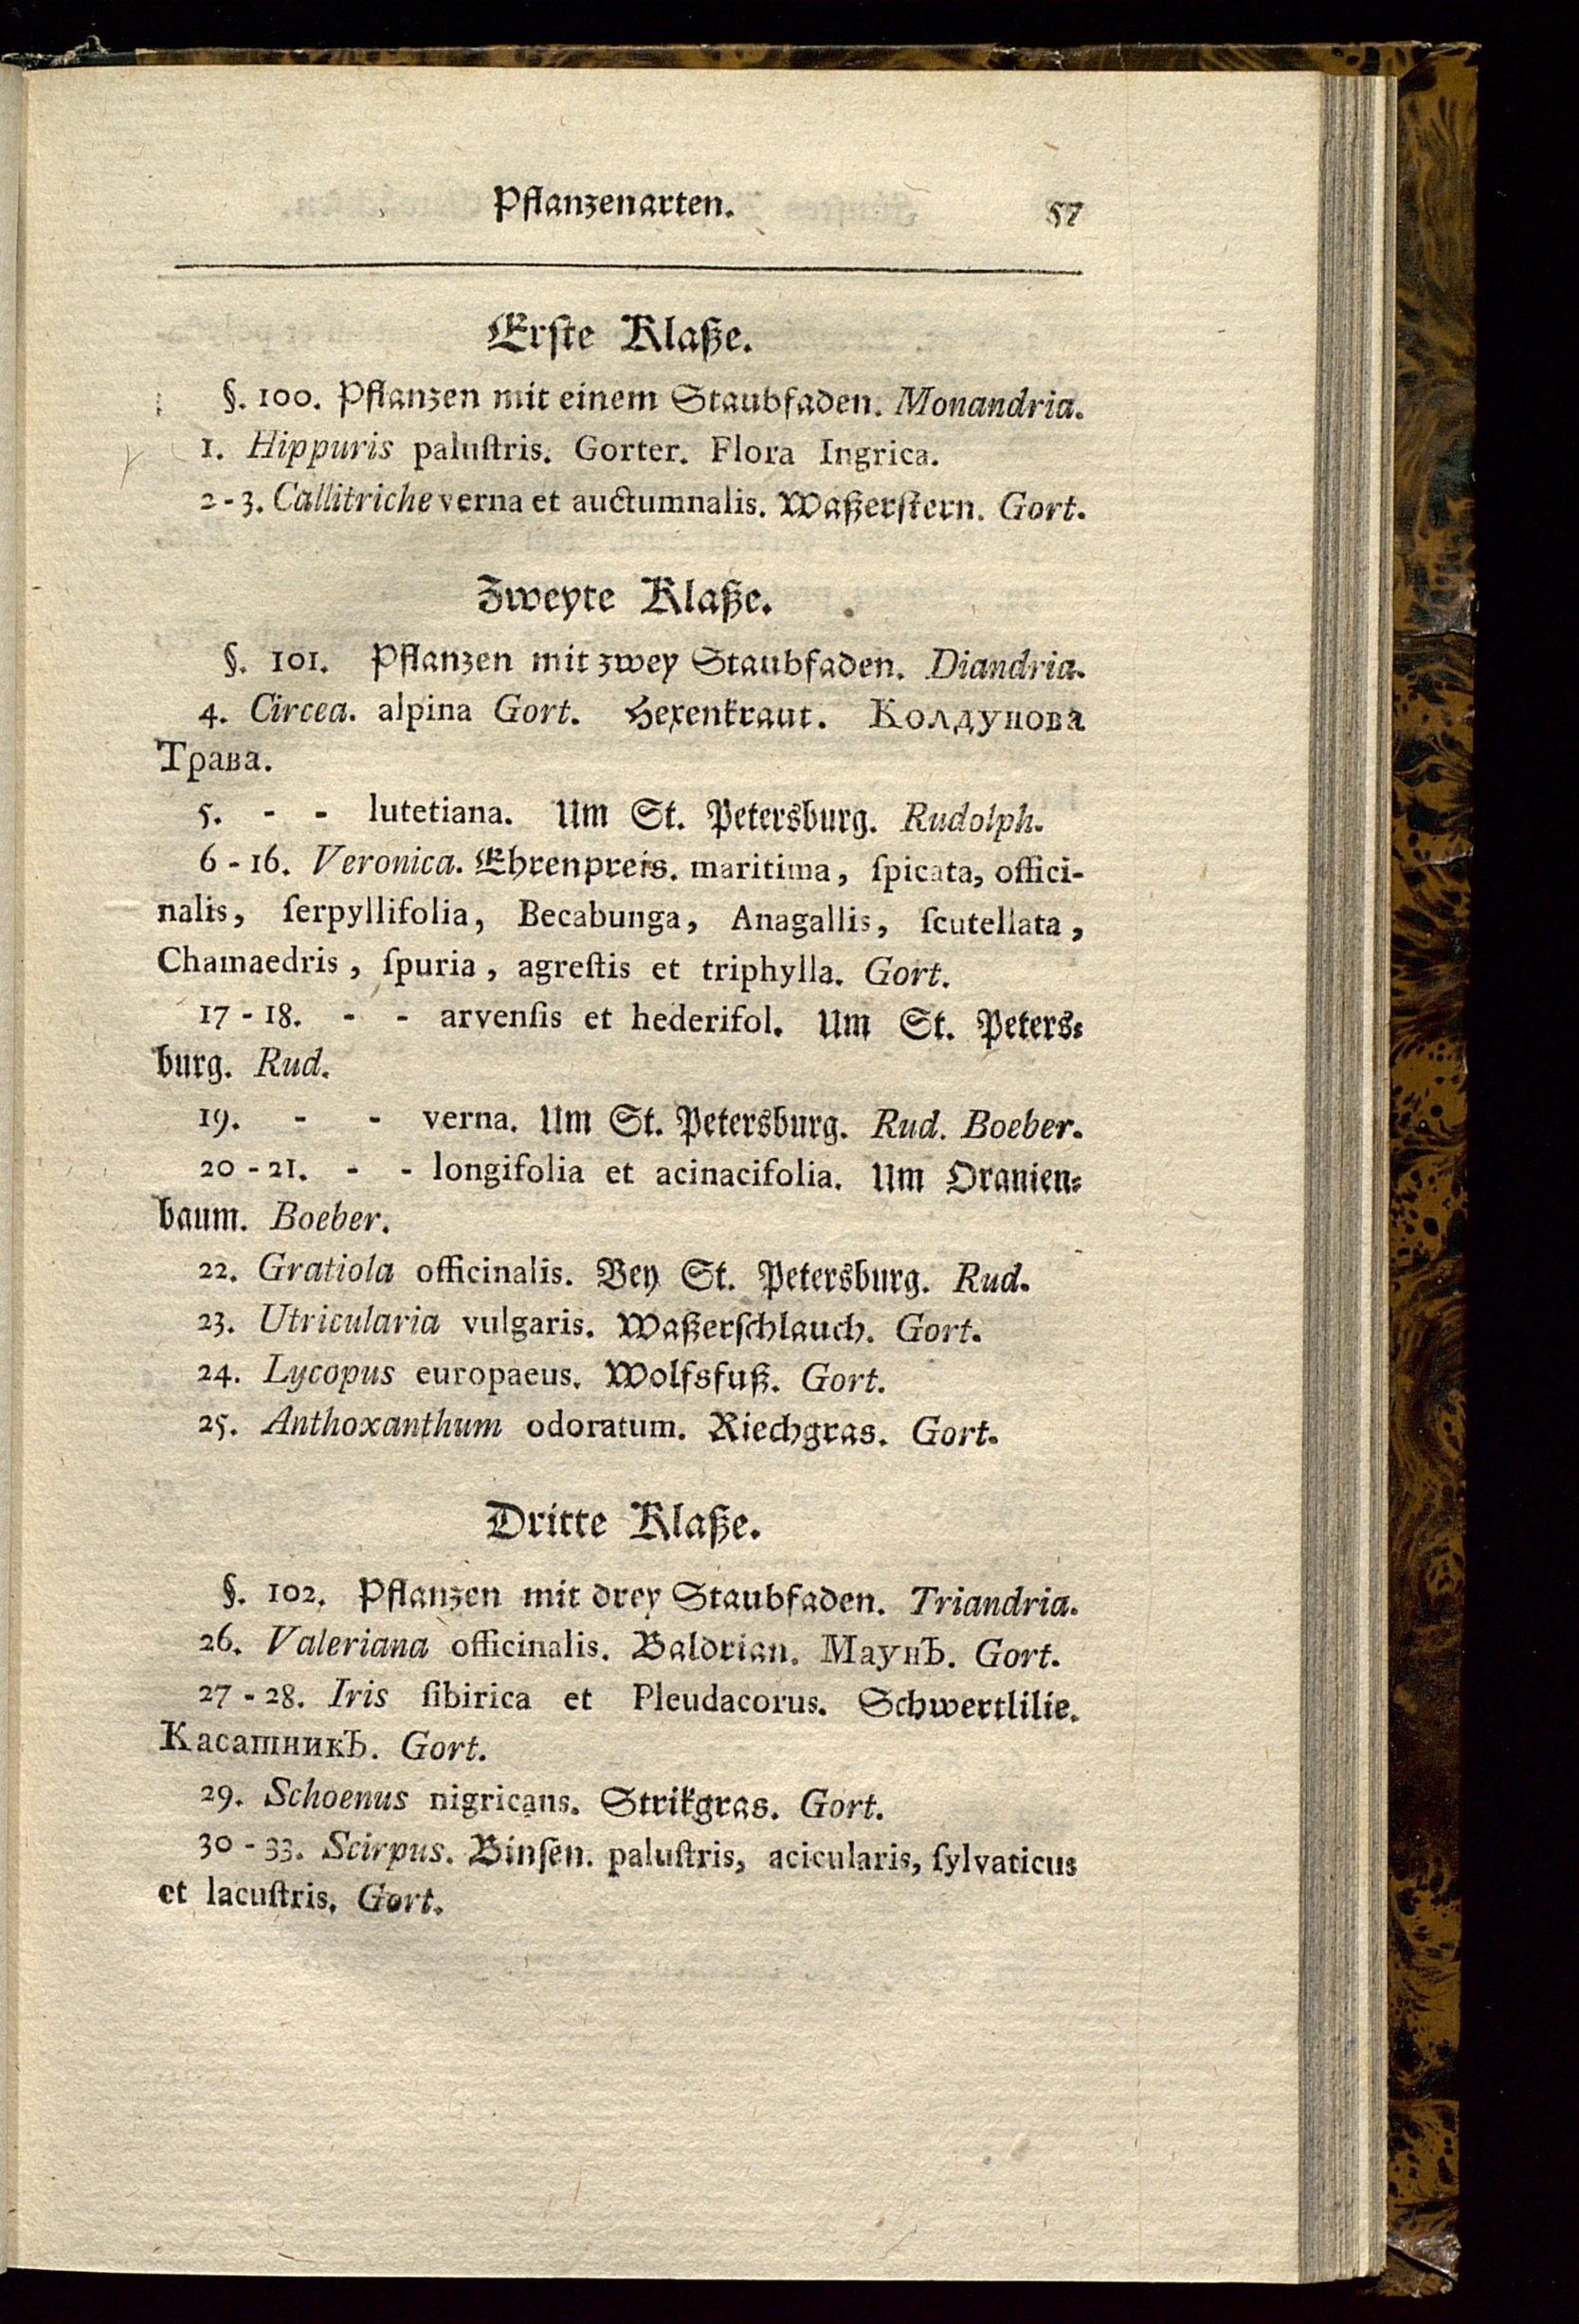 Pflanzenarten. 57
Erſte Klaße.
§. 100. Pflanzen mit einem Staubfaden. Monandria.
1. Hippuris paluſtris. Gorter. Flora Ingrica.
2-3. Callitriche verna et auctumnalis. Waßerſtern. Gort.
Zweyte Klaße.
§. 101. Pflanzen mit zwey Staubfaden. Diandria.
4. Circea. alpina Gort. Hexenkraut. Колдунова
Трава.
5. - - lutetiana. Um St. Petersburg. Rudolph.
6-16. Veronica. Ehrenpreis. maritima, ſpicata, offici-
nalis, ſerpyllifolia, Becabunga, Anagallis, ſcutellata,
Chamaedris, ſpuria, agreſtis et triphylla. Gort.
17-18. - - arvenſis et hederifol. Um St. Peters-
burg. Rud.
19. - - verna. Um St. Petersburg. Rud. Boeber.
20-21. - - longifolia et acinacifolia. Um Oranien-
baum. Boeber.
22. Gratiola officinalis. Bey St. Petersburg. Rud.
23. Utricularia vulgaris. Waßerſchlauch. Gort.
24. Lycopus europaeus. Wolfsfuß. Gort.
25. Anthoxanthum odoratum. Riechgras. Gort.
Dritte Klaße.
§. 102. Pflanzen mit drey Staubfaden. Triandria.
26. Valeriana officinalis. Baldrian. Маунъ. Gort.
27-28. Iris ſibirica et Pleudacorus. Schwertlilie.
Касатникъ. Gort.
29. Schoenus nigricans. Strikgras. Gort.
30-33. Scirpus. Binſen. paluſtris, acicularis, ſylvaticus
et lacuſtris. Gort.